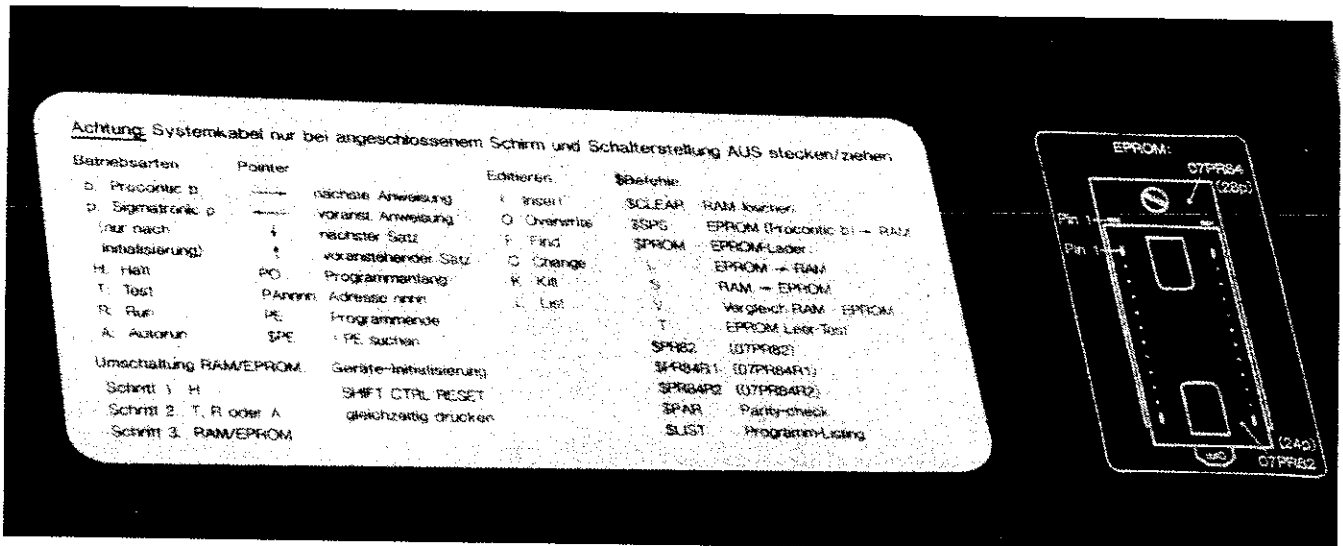 Achtung: Systemkabel nur bei angeschlossenem Schirm und Schalterstellung AUS stecken/ziehen
Betriebsarten
b: Procontic b
p: Sigmatronic p
(nur nach
Initialisierung)
H: Halt
T: Test
R: Run
A: Autorun
Pointer
→ nächste Anweisung
← voranst. Anweisung
↓ nächster Satz
↑ voranstehender Satz
PO Programmanfang
PAnnnn Adresse nnnn
PE Programmende
$PE : PE suchen
Editieren:
I Insert
O Overwrite
F Find
C Change
K Kill
L List
$Befehle:
$CLEAR RAM löschen
$SPS EPROM (Procontic b) → RAM
$PROM EPROM-Lader
L EPROM → RAM
S RAM → EPROM
V Vergleich RAM - EPROM
T EPROM Leer-Test
$PR82 (07PR82)
$PR84R1 (07PR84R1)
$PR84R2 (07PR84R2)
$PAR Parity-check
$LIST Programm-Listing
Umschaltung RAM/EPROM
Schritt 1: H
Schritt 2: T, R oder A
Schritt 3: RAM/EPROM
Geräte-Initialisierung
SHIFT CTRL RESET
gleichzeitig drücken
EPROM:
07PR84
(28p)
Pin 1
Pin 1
(24p)
07PR82